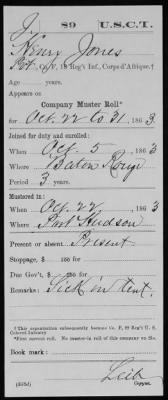 J 89 U.S.C.T.
Henry Jones
Pvt, Co. F, 18 Reg't Inf., Corps d'Afrique.†
Age years.
Appears on
Company Muster Roll*
for Oct. 22 to 31, 1863
Joined for duty and enrolled:
When Oct. 5, 1863
Where Baton Rouge
Period 3 years.
Mustered in:
When Oct. 22, 1863
Where Port Hudson
Present or absent Present
Stoppage, $ 100 for
Due Gov't, $ 100 for
Remarks: Sick in tent.
†This organization subsequently became Co. F, 89 Reg't U. S.
Colored Infantry
*First current roll. No muster-in roll of this company on file.
Book mark:
Leib
Copyist.